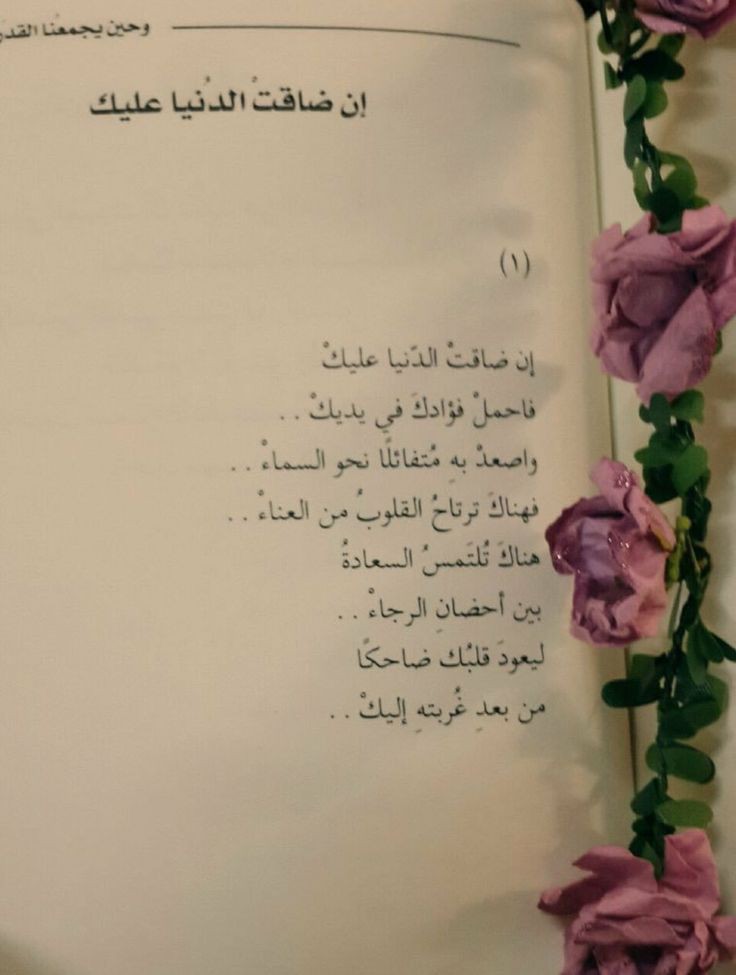 وحين يجمعنا القدر
إن ضاقتْ الدُنيا عليك
(١)
إن ضاقتْ الدّنيا عليكْ
فاحملْ فؤادكَ في يديكْ . .
واصعدْ بهِ مُتفائلًا نحو السماءْ . .
فهناكَ ترتاحُ القلوبُ من العناءْ . .
هناكَ تُلتَمسُ السعادةُ
بين أحضانِ الرجاءْ . .
ليعودَ قلبُك ضاحكًا
من بعدِ غُربتهِ إليكْ . .